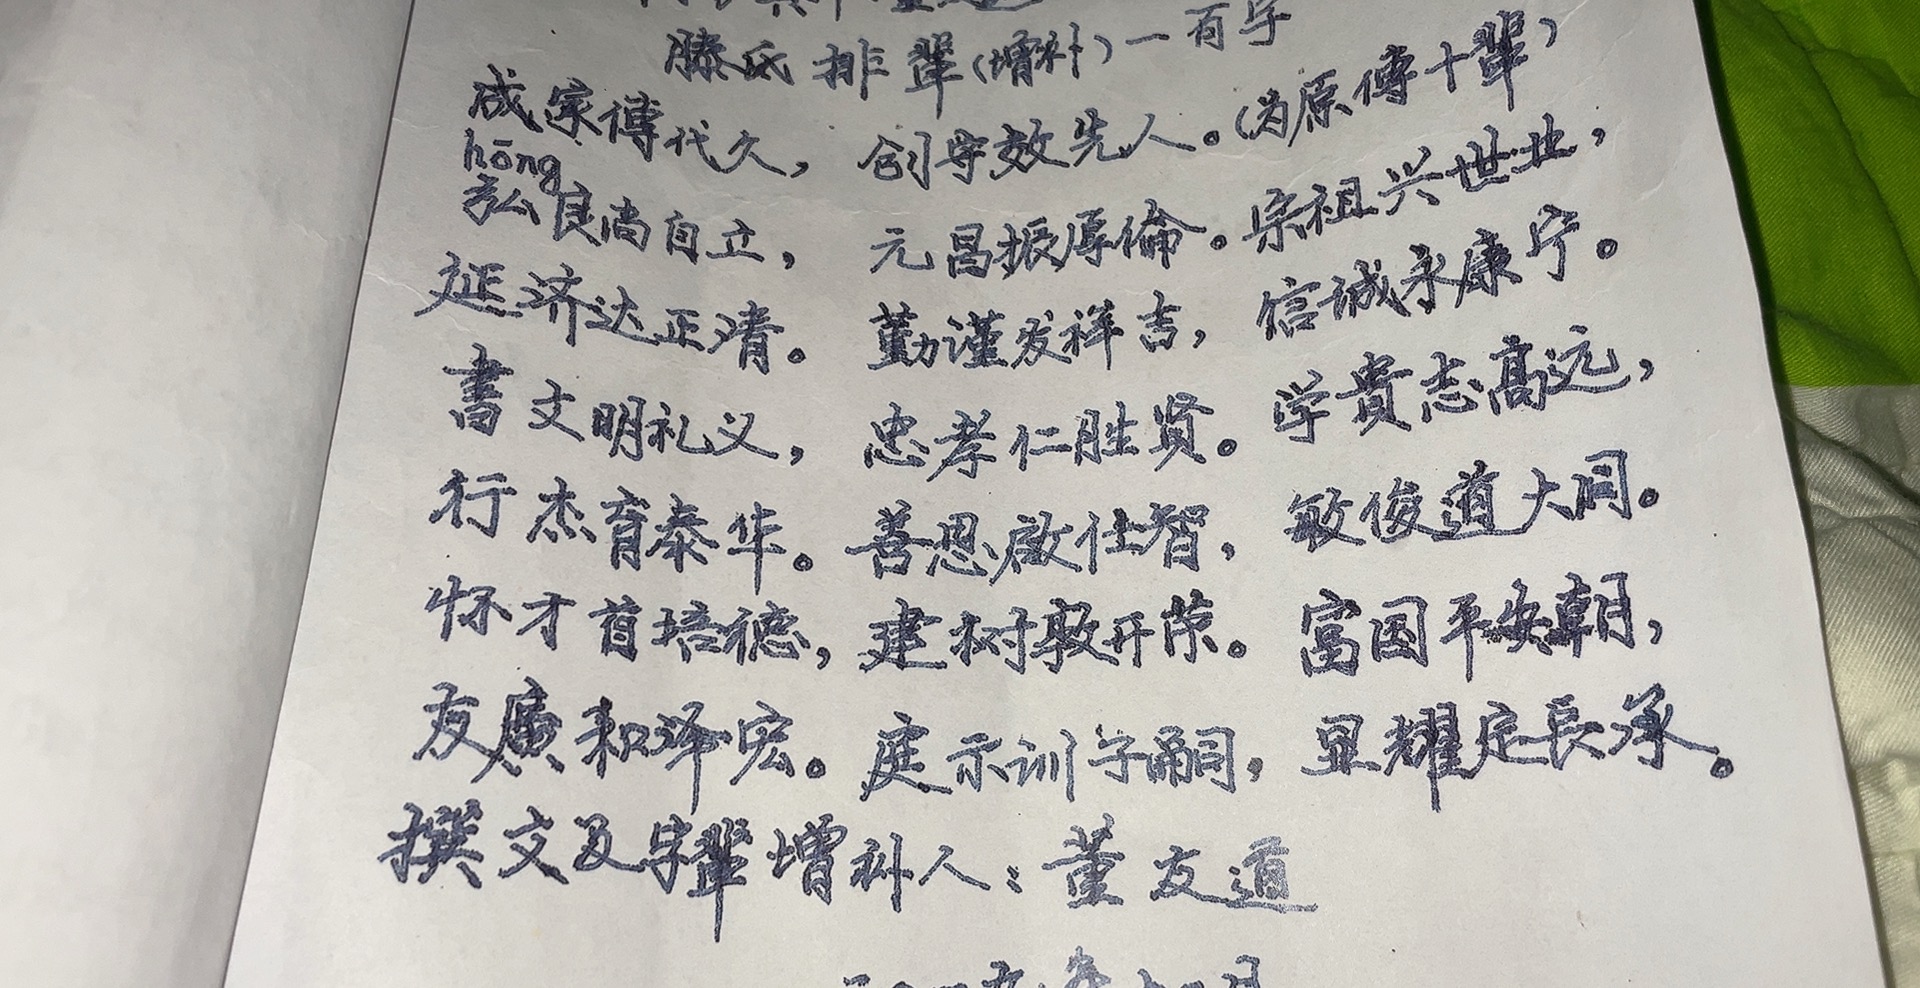 滕氏排辈(增补)一百字
成家傳代久， 创守效先人。(为原傳十辈)
hōng
弘良尚自立， 元昌振厚倫。宗祖兴世业，
延济达正清。 勤谨发祥吉， 信诚永康宁。
書文明礼义， 忠孝仁胜贤。学貴志高远，
行杰育泰华。善恩啟仕智， 敏俊道大同。
怀才首培德，建树敦开荣。 富国平安朝，
友廣和泽宏。庭示训子嗣， 显耀定長承。
撰文及字辈增补人：董友道